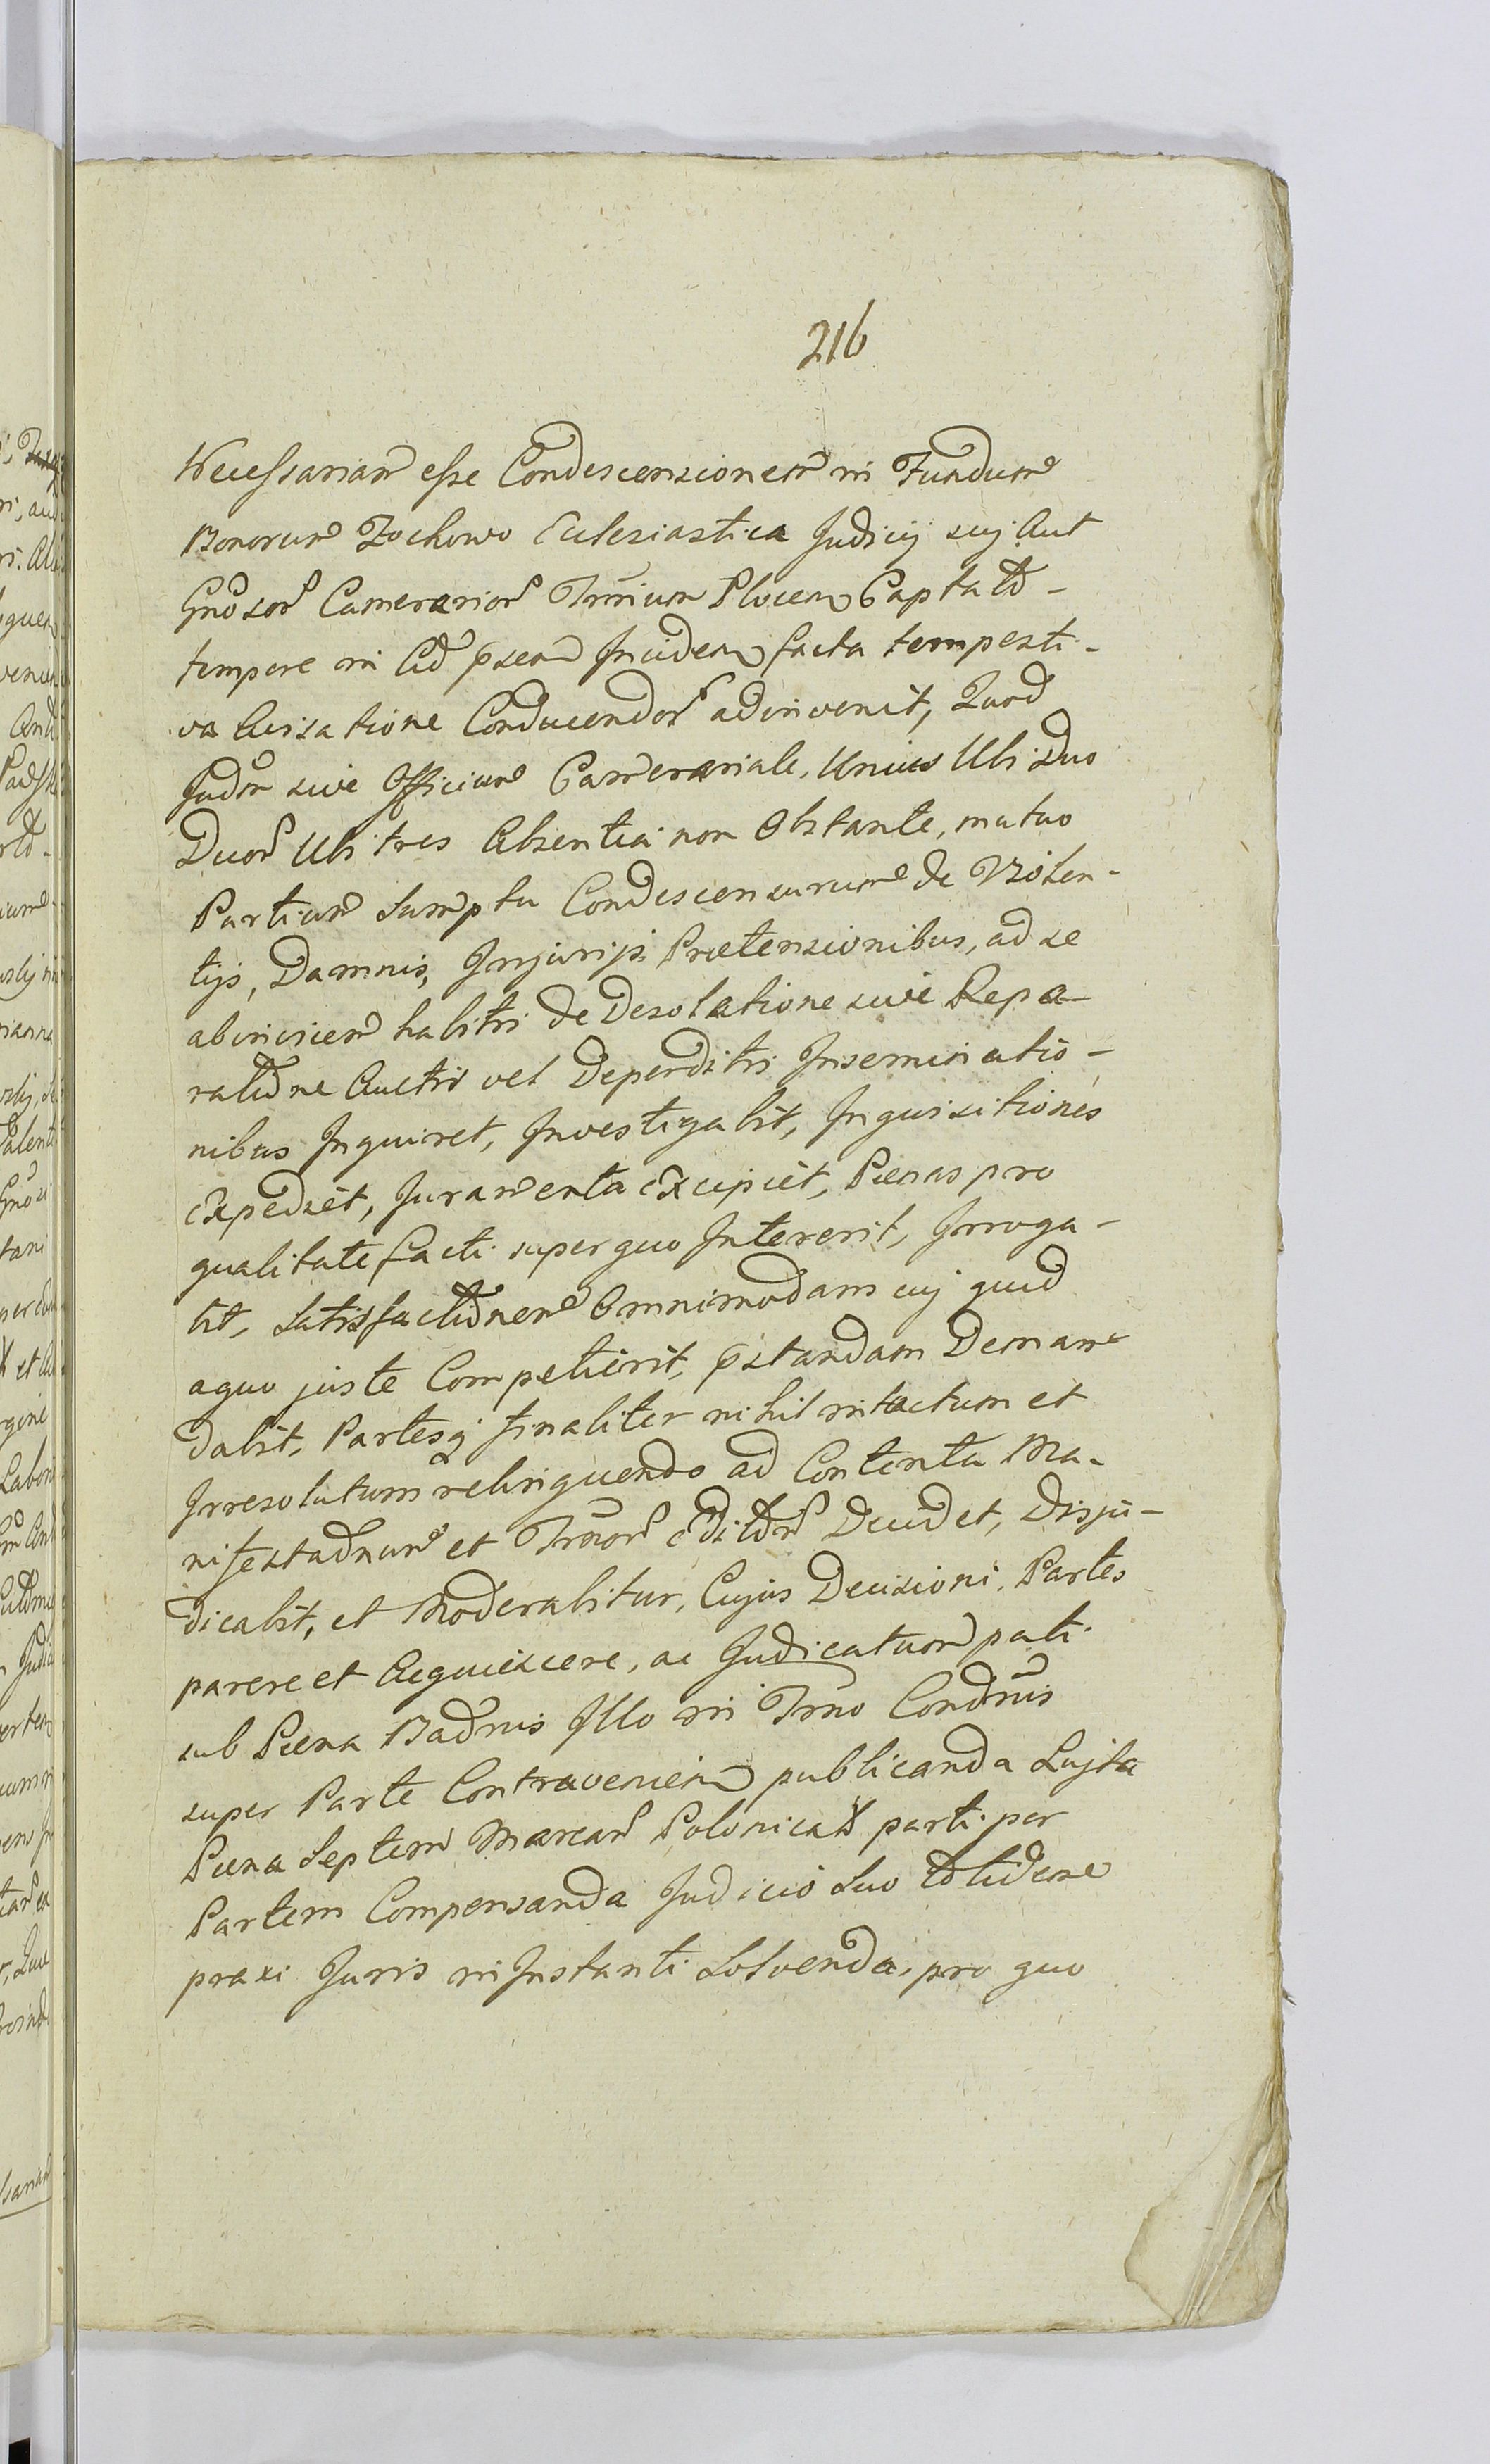 216
Necessariam esse Condescensionem in Fundum
Bonorum Zochowo Ecclesiastica Judicij sui Aut
Gnosor Camerarior Trrium Plocen Captato
tempore in Cid psen Inciden facta tempesti-
va Avisatione Conducendor adinvenit, Quod
Judm sive Officium Camerariale, Unius Ubi duo
Duor Ubi tres Absentia non Obstante, mutuo
Partium Sumptu Condescensurum de Violen-
tijs, Damnis, Injurijs Praetensionibus, ad se
abinvicem habitis de Desolatione sive Repa-
ratione Auctis vel Deperditis Inseminatio-
nibus Inquiret, Investigabit, Inquisitiones
Expediet, Juramenta Excipiet, Paenas pro
qualitate facti super quo Intererit, Irroga-
bit, Satisfactionem Omnimodam cuj quid
aquo juste Competierit, pstandam Deman-
dabit, Partesq finaliter nihil intactum et
Irresolutum relinquendo ad Contenta Ma-
nifestationum et Trmor Editor Decidet, Disju-
dicabit, et Moderabitur, Cujus Decisioni, Partes
parere et Acquiescere, ac Judicatum pati
sub Paena Badnnis Illo in Trno Condnis
super Parte Contravenien publicanda Lujta
Paena Septem Marcar Polonical parti per
Partem Compensanda Judicio Suo totidem
praxi Juris in Instanti Solvenda, pro quo